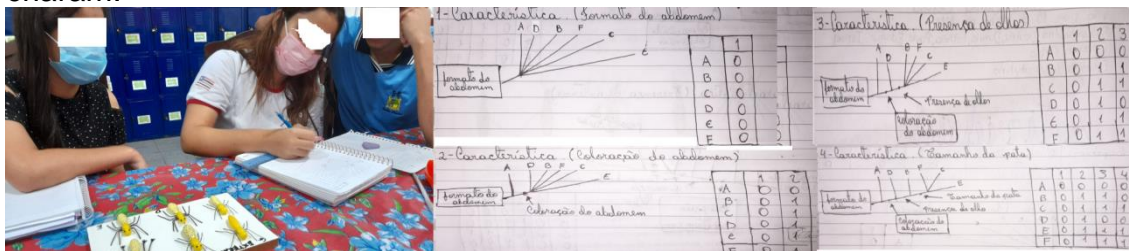 1-Característica. (Formato do abdomem)
A D B F C
E
formato do
abdomem
1
A 0
B 0
C 0
D 0
E 0
F 0
2-Característica (Coloração do abdomem)
A D B F C
E
formato do
abdomem
Coloração do abdomem
1 2
A 0 0
B 0 1
C 0 1
D 0 1
E 0 1
3-Característica. (Presença de olhos)
A B F
D C
E
formato do
abdomem
Presença de olhos
Coloração
do abdomem
1 2 3
A 0 0 0
B 0 1 1
C 0 1 1
D 0 1 0
E 0 1 1
F 0 1 1
4-Característica. (Tamanho da pata)
A D B F C
E
formato do
abdomem
Tamanho da pata
Presença de olho
Coloração do
abdomem
1 2 3 4
A 0 0 0 0
B 0 1 1 0
C 0 1 1 1
D 0 1 0 0
E 0 1 1 1
F 0 1 1